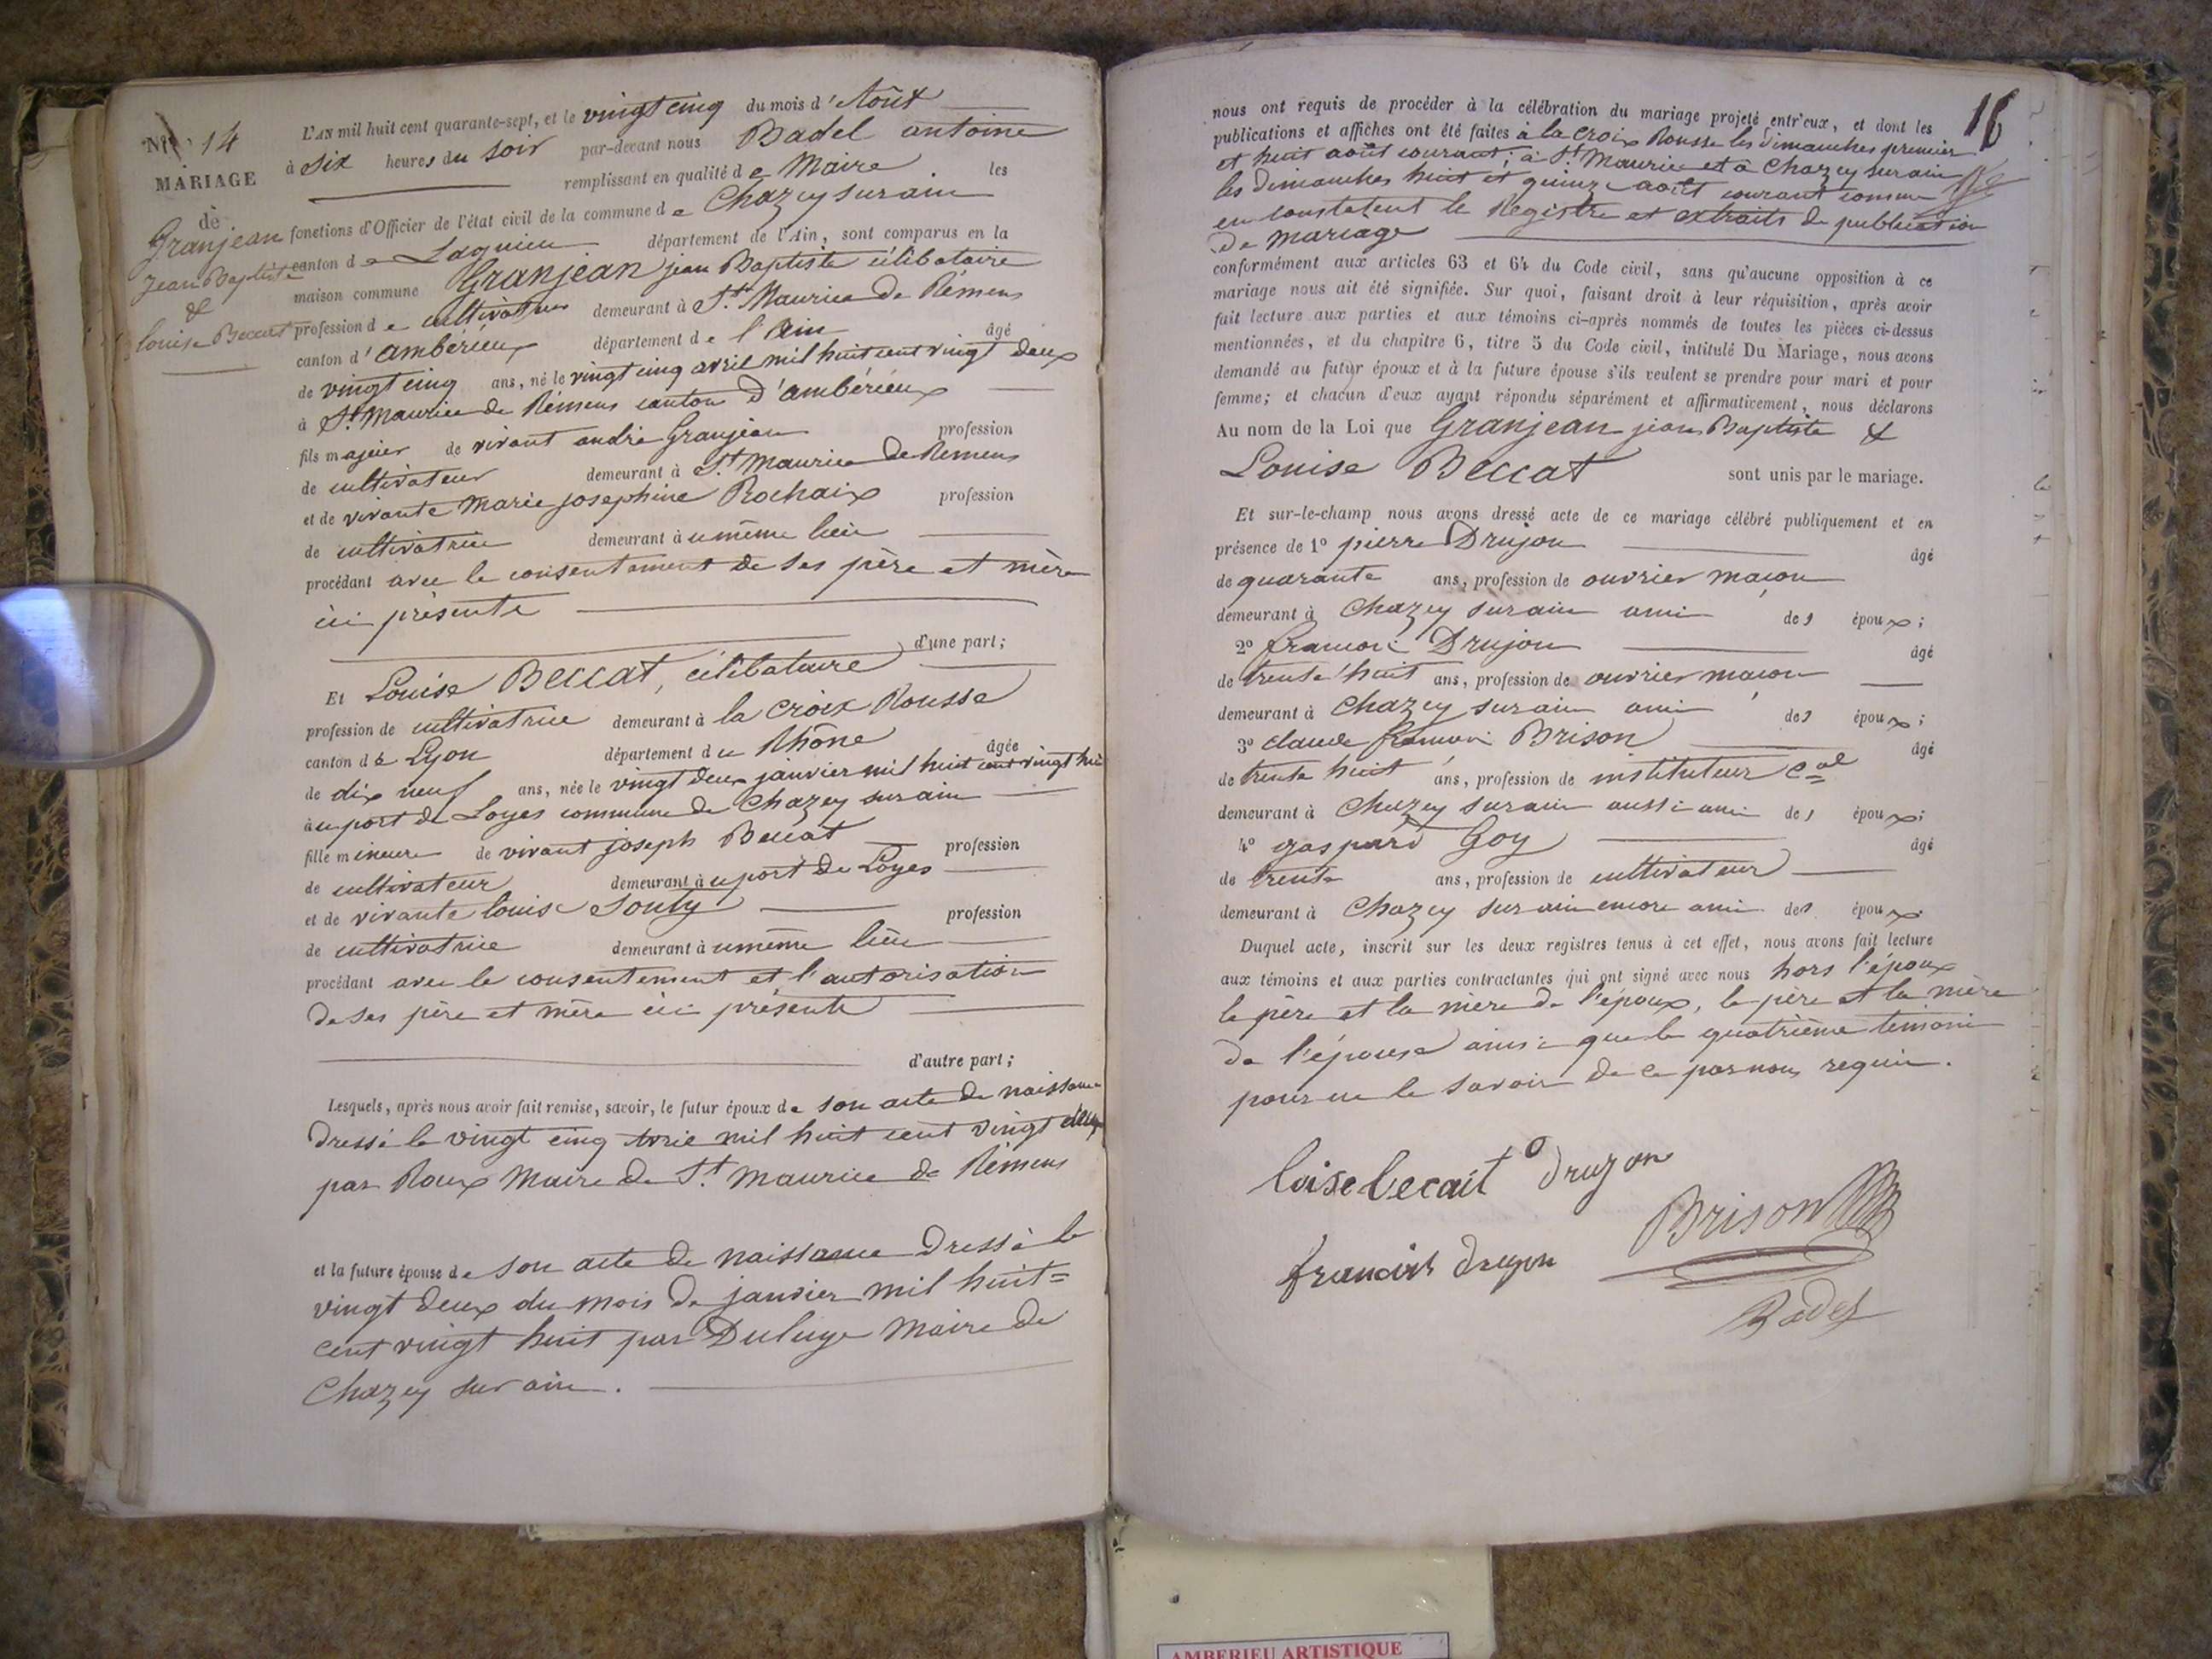 N° 14
MARIAGE
de
Granjean
Jean Baptiste
&
louise Beccat
L'AN mil huit cent quarante-sept, et le vingt cinq du mois d'Août
à six heures du soir par-devant nous Badel antoine
remplissant en qualité de Maire les
fonctions d'Officier de l'état civil de la commune de Chazey sur ain
canton de Lagnieu département de l'Ain, sont comparus en la
maison commune Granjean jean Baptiste célibataire
profession de cultivateur demeurant à St. Maurice de Rémens
canton d'ambérieux département de l'Ain âgé
de vingt cinq ans, né le vingt cinq avril mil huit cent vingt deux
à St. Maurice de Rémens canton d'ambérieux
fils majeur de vivant andré Granjean profession
de cultivateur demeurant à St. Maurice de Rémens
et de vivante Marie josephine Rochaix profession
de cultivatrice demeurant à u même lieu
procédant avec le consentement de ses père et mère
ici présente
d'une part;
Et Louise Beccat, célibataire
profession de cultivatrice demeurant à la Croix Rousse
canton de Lyon département du Rhône âgée
de dix neuf ans, née le vingt deux janvier mil huit cent vingt huit
à u port de Loyes commune de Chazey sur ain
fille mineure de vivant joseph Beccat profession
de cultivateur demeurant à u port de Loyes
et de vivante louise Souty profession
de cultivatrice demeurant à u même lieu
procédant avec le consentement et l'autorisation
de ses père et mère ici présente
d'autre part;
Lesquels, après nous avoir fait remise, savoir, le futur époux de son acte de naissance
dressé le vingt cinq avril mil huit cent vingt deux
par Roux Maire de St. Maurice de Rémens
et la future épouse de son acte de naissance dressé le
vingt deux du mois de janvier mil huit=
cent vingt huit par Duluye Maire de
Chazey sur ain.
16
nous ont requis de procéder à la célébration du mariage projeté entr'eux, et dont les
publications et affiches ont été faites à la Croix Rousse les dimanches premier
et huit août courant; à St. Maurice et à Chazey sur ain
les dimanches huit et quinze août courant comme
en constatent le Registre et extraits de publication
de mariage
conformément aux articles 63 et 64 du Code civil, sans qu'aucune opposition à ce
mariage nous ait été signifiée. Sur quoi, faisant droit à leur réquisition, après avoir
fait lecture aux parties et aux témoins ci-après nommés de toutes les pièces ci-dessus
mentionnées, et du chapitre 6, titre 5 du Code civil, intitulé Du Mariage, nous avons
demandé au futur époux et à la future épouse s'ils veulent se prendre pour mari et pour
femme; et chacun d'eux ayant répondu séparément et affirmativement, nous déclarons
Au nom de la Loi que Granjean jean Baptiste &
Louise Beccat sont unis par le mariage.
Et sur-le-champ nous avons dressé acte de ce mariage célébré publiquement et en
présence de 1° pierre Drujon âgé
de quarante ans, profession de ouvrier maçon
demeurant à Chazey sur ain ami des époux;
2° francois Drujon âgé
de trente huit ans, profession de ouvrier maçon
demeurant à Chazey sur ain ami des époux;
3° claude francois Brison âgé
de trente huit ans, profession de instituteur cal
demeurant à Chazey sur ain aussi ami des époux;
4° gaspard Goy âgé
de trente ans, profession de cultivateur
demeurant à Chazey sur ain encore ami des époux.
Duquel acte, inscrit sur les deux registres tenus à cet effet, nous avons fait lecture
aux témoins et aux parties contractantes qui ont signé avec nous hors l'époux
le père et la mère de l'époux, le père et la mère
de l'épouse ainsi que le quatrième témoin
pour ne le savoir de ce par nous requis.
loise becait drujon
Brison
francois drujon
Badel
AMBERIEU ARTISTIQUE